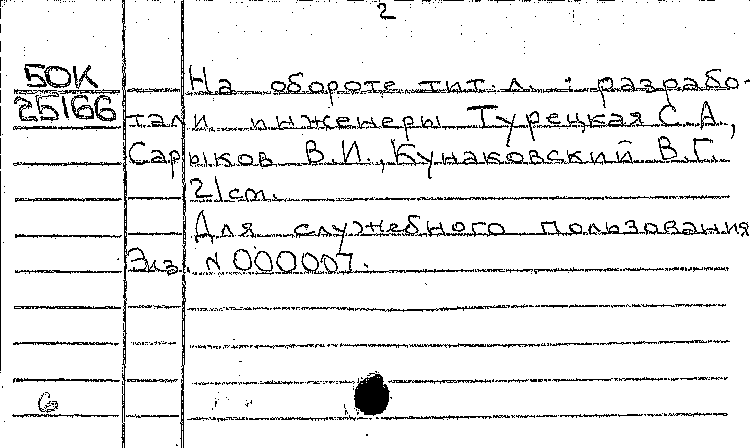 2
50К На обороте тит. л. : разрабо-
25166 тали инженеры Турецкая С.А.,
Сарыков В.И., Кунаковский В.Г.
21 cm.
Для служебного пользования
Экз. N 000007.
6